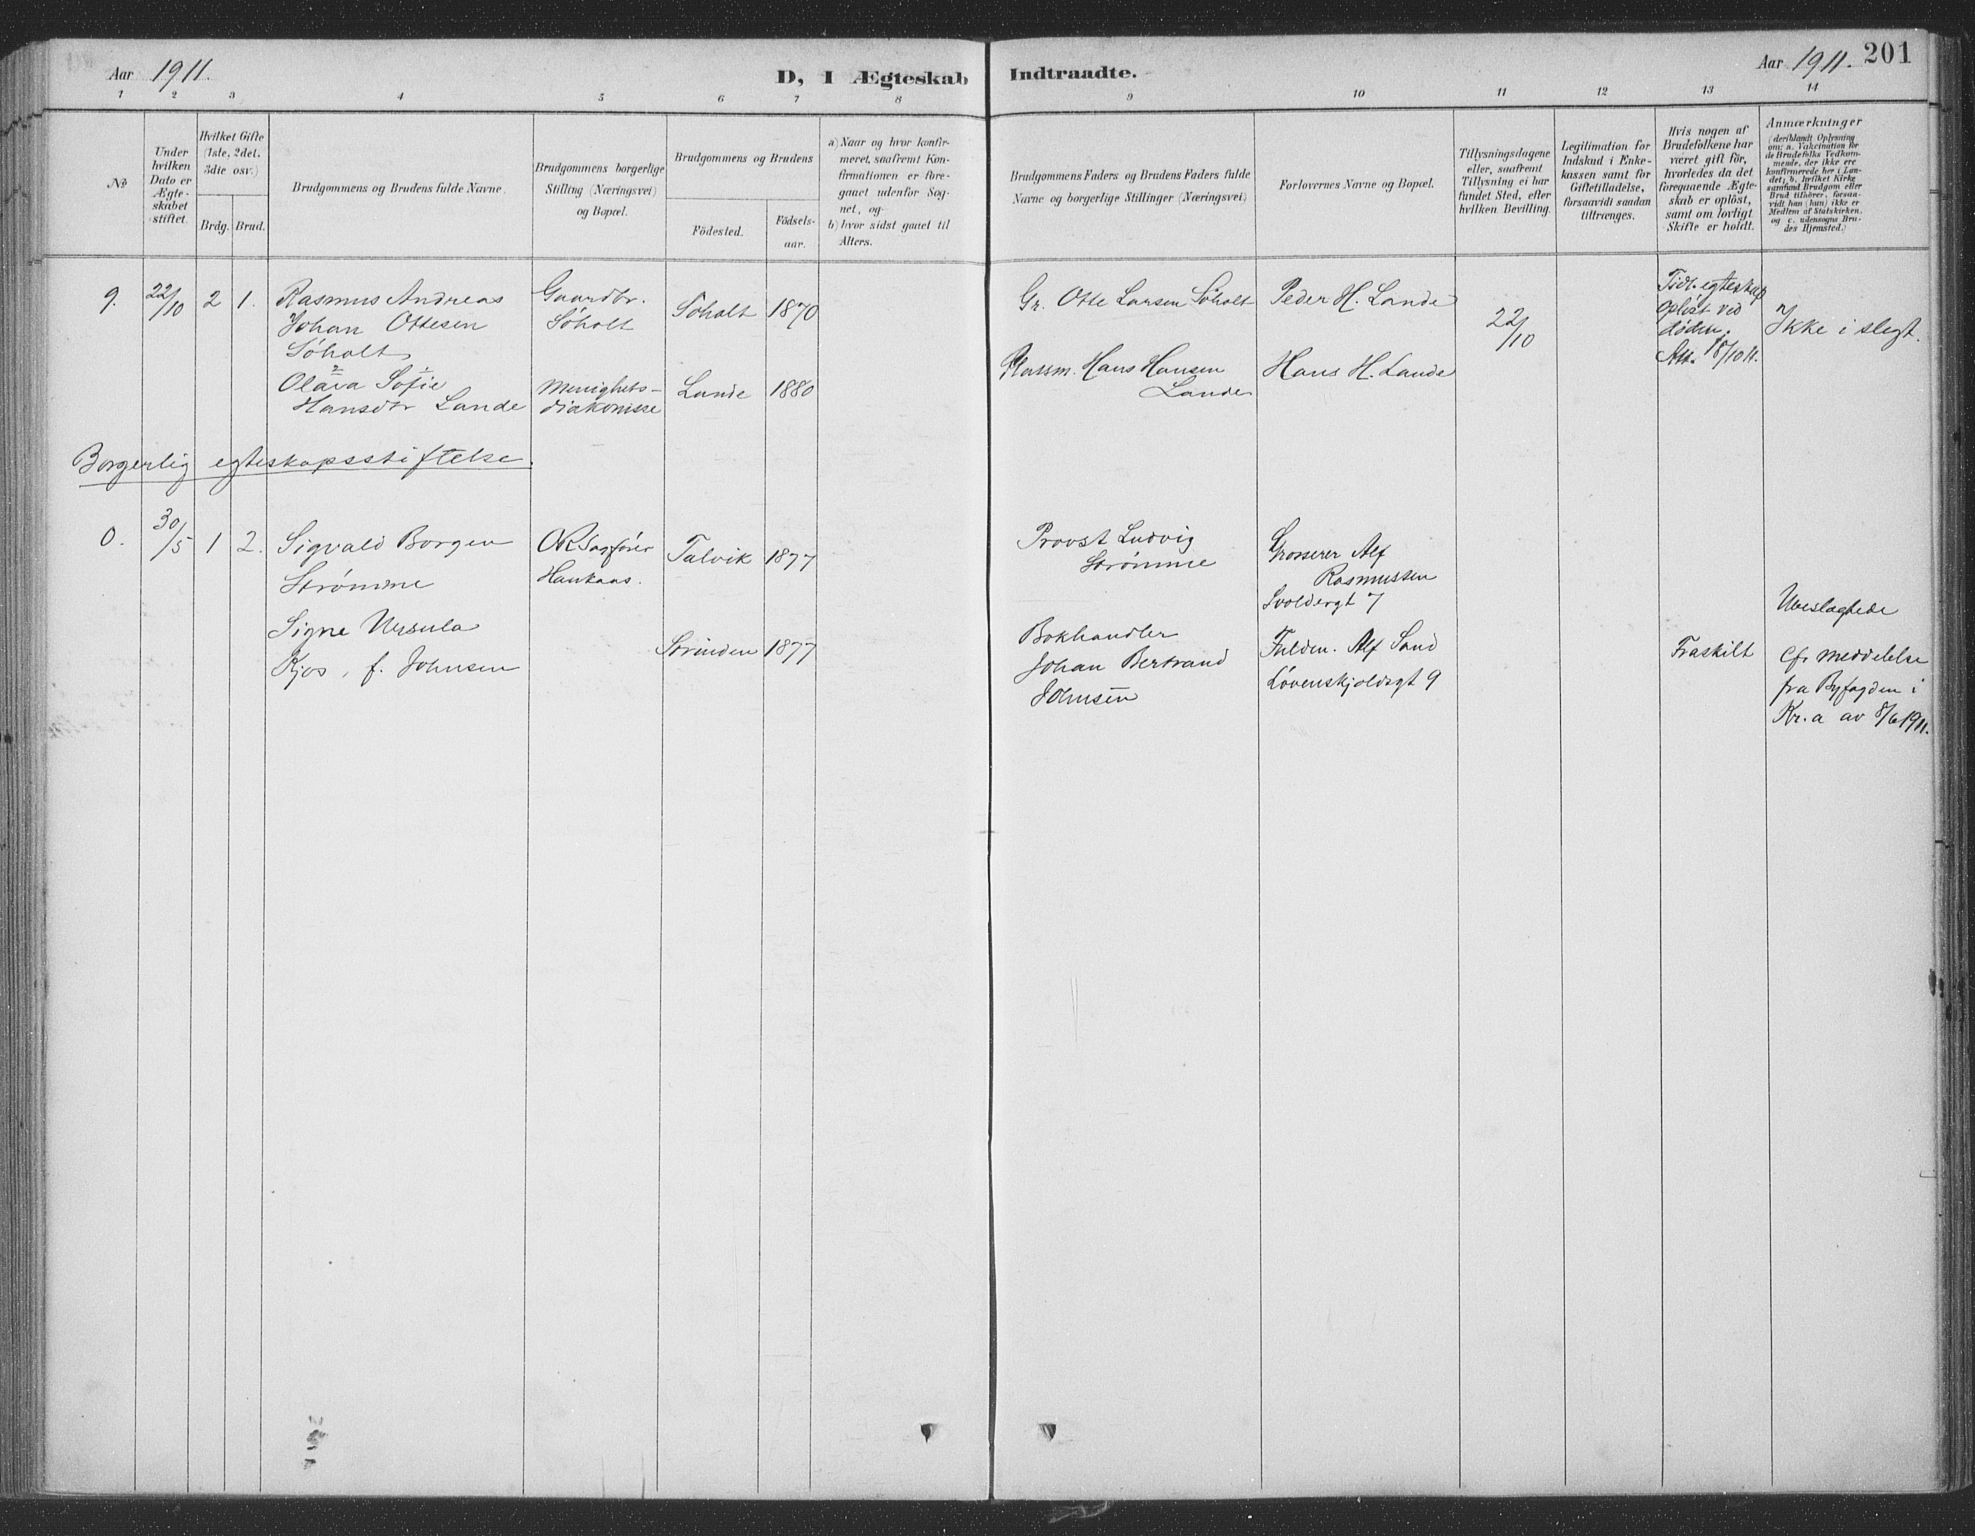 Aar 1911.
D, I Ægteskab Indtraadte.
Aar 1911. 201
1 2 3 4 5 6 7 8 9 10 11 12 13 14
No
Under hvilken Dato er Ægteskabet stiftet.
Hvilket Gifte (1ste, 2det, 3die osv.)
Brdg. Brud.
Brudgommens og Brudens fulde Navne.
Brudgommens borgerlige Stilling (Næringsvei) og Bopæl.
Brudgommens og Brudens
Födested.
Födselsaar.
a) Naar og hvor konfirmeret, saafremt Konfirmationen er foregaaet udenfor Sognet, og
b) hvor sidst gaaet til Alters.
Brudgommens Faders og Brudens Faders fulde Navne og borgerlige Stillinger (Næringsvei)
Forlovernes Navne og Bopæl.
Tillysningsdagene eller, saafremt Tillysning ei har fundet Sted, efter hvilken Bevilling.
Legitimation for Indskud i Enkekassen samt for Giftetilladelse, forsaavidt saadan tiltrænges.
Hvis nogen af Brudefolkene har været gift för, hvorledes da det foregaaende Ægteskab er oplöst, samt om lovligt Skifte er holdt.
Anmærkninger
(deriblandt Oplysning om: a. Vakcination for de Brudefolks Vedkommende, der ikke ere konfirmerede her i Landet; b. hvilket Kirkesamfund Brudgom eller Brud tilhörer, forsaavidt han (hun) ikke er Medlem af Statskirken, og c. udensogns Brudes Hjemsted.)
9. 22/10 2 1.
Rasmus Andreas
Johan Ottesen
Søholt
Gaardbr.
Søholt
Søholt 1870
Gr. Otte Larsen Søholt
Peder H. Lande
22/10
Tidl. egteskap
opløst ved
døden.
Att. 18/10 11.
Ikke i slegt.
2 1
Olava Sofie
Hansdtr Lande
Menighets-
diakonisse
Lande 1880
Plassm. Hans Hansen
Lande
Hans H. Lande
Borgerlig egteskapsstiftelse.
0. 30/5 1 2.
Sigvald Borgen
Strømme
ORSagfører
Talvik 1877
Provst Ludvig
Strømme
Grosserer Alf
Rasmussen
Svoldergt 7
Ubeslagtede
Signe Ursula
Kjos, f. Johnsen
Strinden 1877
Bokhandler
Johan Bertrand
Johnsen
Alf Sand
Løvenskjoldsgt 9
Fraskilt
Cfr meddelelse
fra Byfogden i
Kr.a av 8/6 1911.